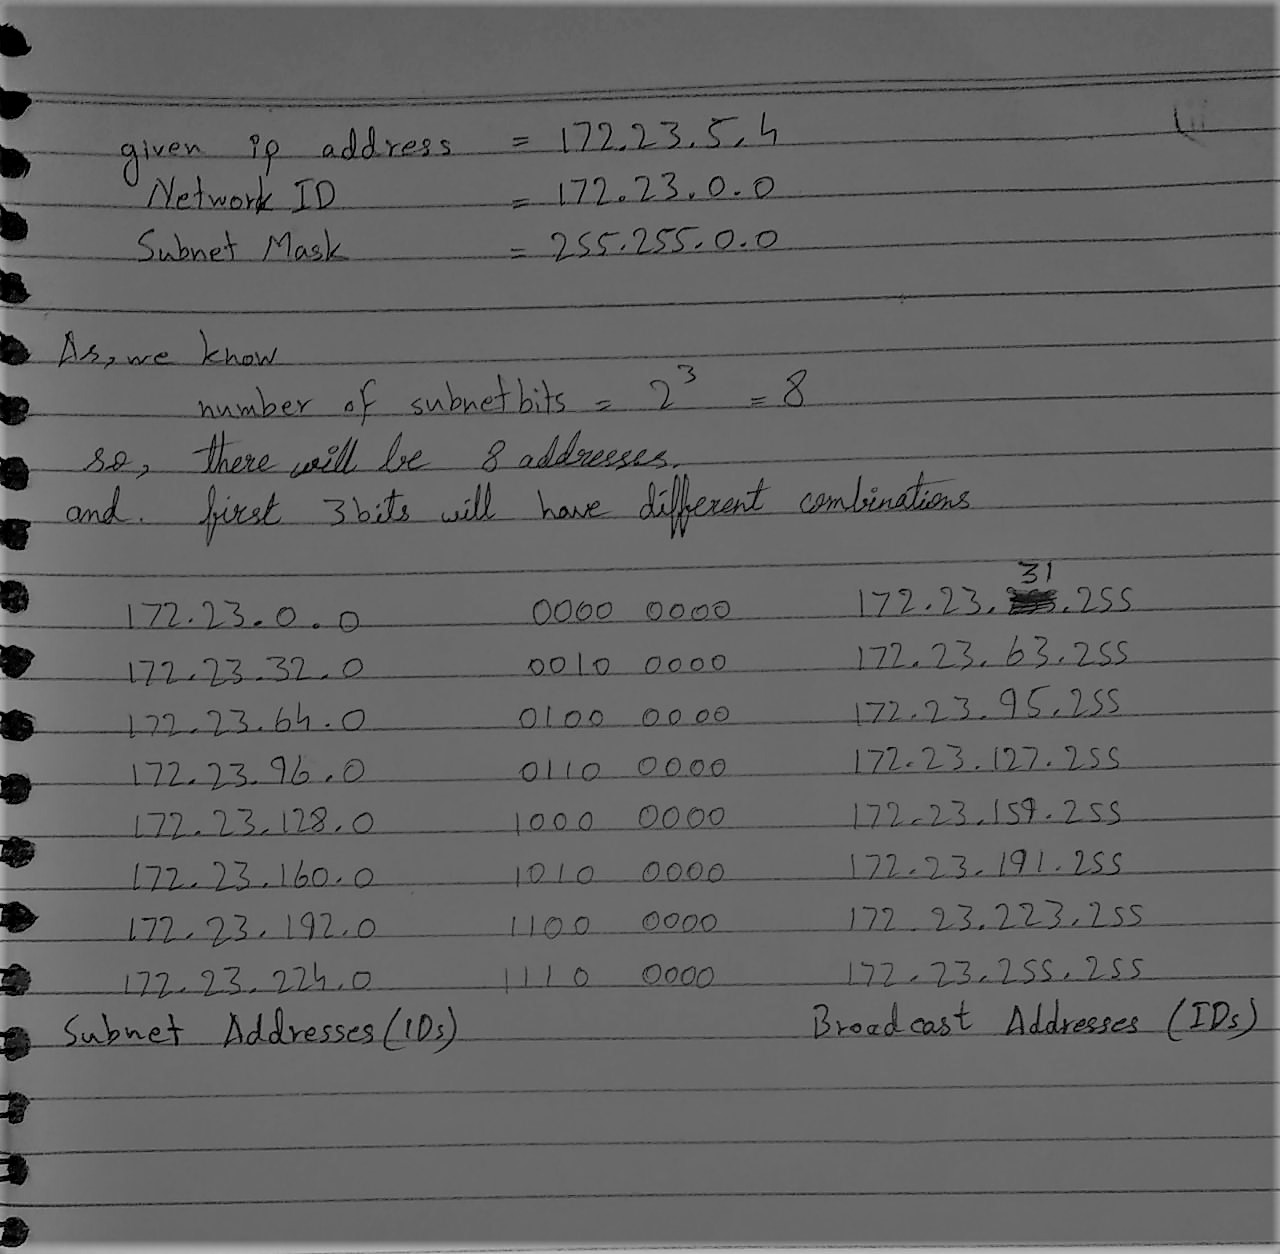 given ip address = 172.23.5.4
Network ID = 172.23.0.0
Subnet Mask = 255.255.0.0
As, we know
number of subnetbits = 2³ = 8
so, there will be 8 addresses.
and. first 3bits will have different combinations
172.23.0.0 0000 0000 172.23.31.255
172.23.32.0 0010 0000 172.23.63.255
172.23.64.0 0100 0000 172.23.95.255
172.23.96.0 0110 0000 172.23.127.255
172.23.128.0 1000 0000 172.23.159.255
172.23.160.0 1010 0000 172.23.191.255
172.23.192.0 1100 0000 172.23.223.255
172.23.224.0 1110 0000 172.23.255.255
Subnet Addresses (IDs) Broadcast Addresses (IDs)